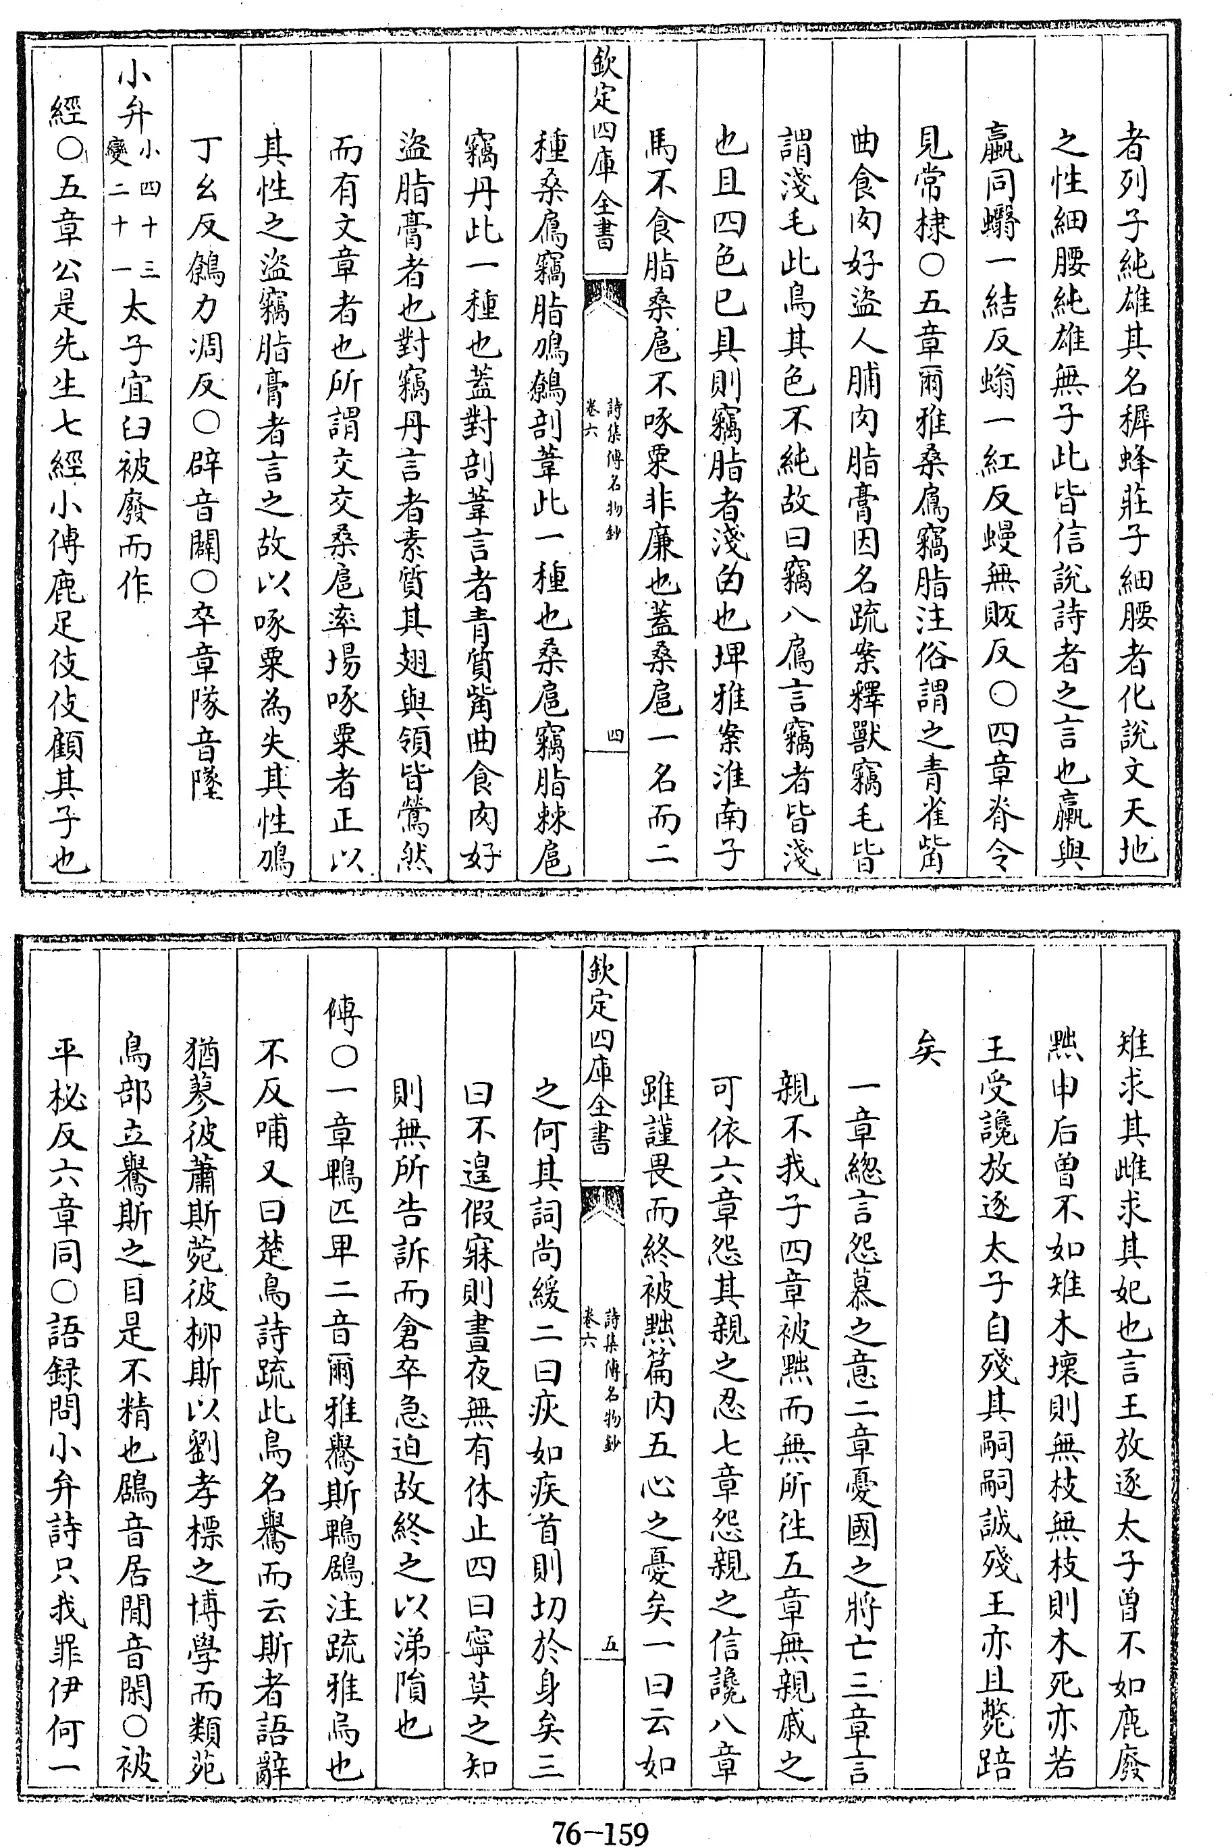 者列子純雄其名穉蜂莊子細腰者化說文天地
之性細腰純雄無子此皆信說詩者之言也蠃與
蠃同蠮一結反螉一紅反蟃無販反○四章脊令
見常棣○五章爾雅桑鳸竊脂注俗謂之青雀觜
曲食肉好盜人脯肉脂膏因名疏案釋獸竊毛皆
謂淺毛此鳥其色不純故曰竊八鳸言竊者皆淺
也且四色已具則竊脂者淺白也埤雅案淮南子
馬不食脂桑扈不啄粟非廉也蓋桑扈一名而二
欽定四庫全書
詩集傳名物鈔
卷六
四
種桑鳸竊脂鳭鷯剖葦此一種也桑扈竊脂棘扈
竊丹此一種也蓋對剖葦言者青質觜曲食肉好
盜脂膏者也對竊丹言者素質其翅與領皆鶯然
而有文章者也所謂交交桑扈率場啄粟者正以
其性之盜竊脂膏者言之故以啄粟為失其性鳭
丁幺反鷯力凋反○辟音闢○卒章隊音墜
小弁小四十三變二十一太子宜臼被廢而作
經○五章公是先生七經小傳鹿足伎伎顧其子也
雉求其雌求其妃也言王放逐太子曾不如鹿廢
黜申后曾不如雉木壞則無枝無枝則木死亦若
王受讒放逐太子自殘其嗣嗣誠殘王亦且斃踣
矣
一章緫言怨慕之意二章憂國之將亡三章言
親不我子四章被黜而無所徃五章無親戚之
可依六章怨其親之忍七章怨親之信讒八章
雖謹畏而終被黜篇内五心之憂矣一曰云如
欽定四庫全書
詩集傳名物鈔
卷六
五
之何其詞尚緩二曰疢如疾首則切於身矣三
曰不遑假寐則晝夜無有休止四曰寧莫之知
則無所告訴而倉卒急迫故終之以涕隕也
傳○一章鴨匹卑二音爾雅鸒斯鴨鶋注疏雅烏也
不反哺又曰楚烏詩疏此鳥名鸒而云斯者語辭
猶蓼彼蕭斯菀彼柳斯以劉孝標之博學而類苑
鳥部立鸒斯之目是不精也鶋音居閒音閑○被
平柲反六章同○語録問小弁詩只我罪伊何一
76-159